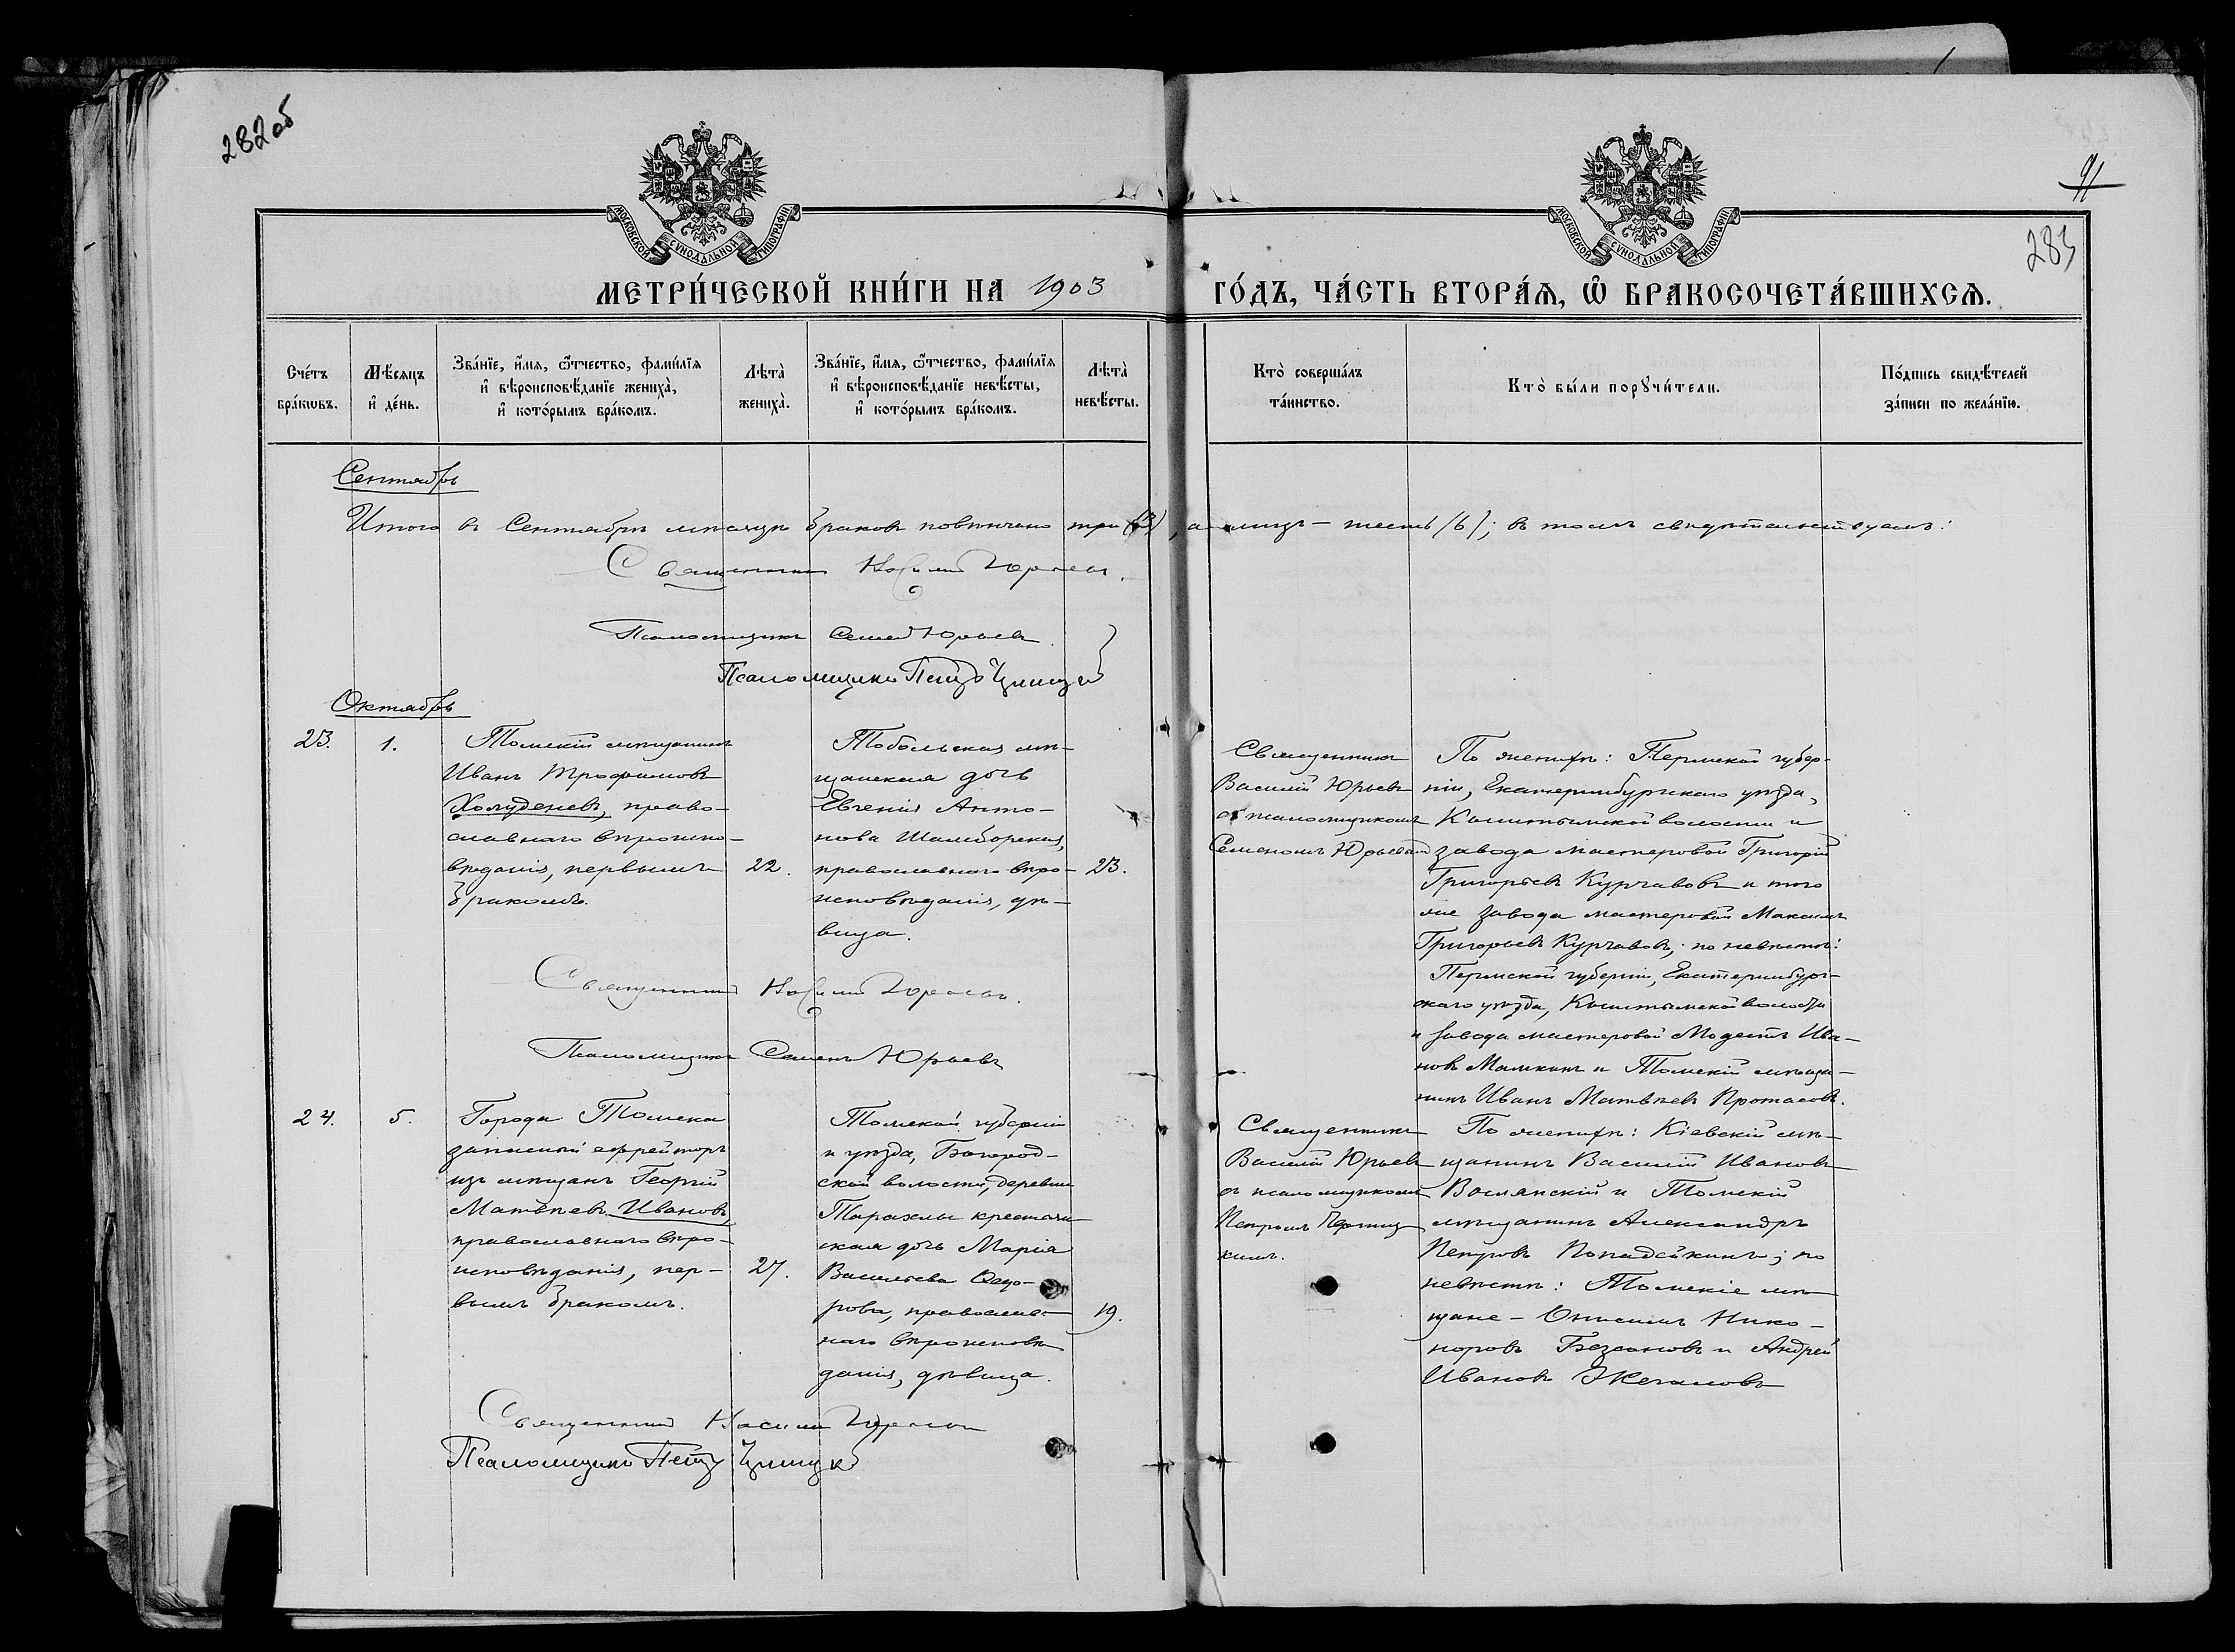 282об
91
283
МОСКОВСКОЙ СѴНОДАЛЬНОЙ ТИПОГРАФІИ
МОСКОВСКОЙ СѴНОДАЛЬНОЙ ТИПОГРАФІИ
МЕТРИ́ЧЕСКОЙ КНИ́ГИ НА 1903 ГО́ДЪ, ЧА́СТЬ ВТОРА́Ѧ, Ѡ҆ БРАКОСОЧЕТА́ВШИХСѦ.
Сче́тъ
бра́кωвъ.
Мѣ́сяцъ
и҆ де́нь.
Зва́нїе, и҆́мѧ, ѻ҆́тчество, фами́лїѧ
и҆ вѣроисповѣ́данїе жениха̀,
и҆ кото́рымъ бра́комъ.
Лѣта̀
жениха̀.
Зва́нїе, и҆́мѧ, ѻ҆́тчество, фами́лїѧ
и҆ вѣроисповѣ́данїе невѣ́сты,
и҆ кото́рымъ бра́комъ.
Лѣта̀
невѣ́сты.
Кто̀ соверша́лъ
та́инство.
Кто̀ бы́ли порꙋчи́тели.
По́дпись свидѣ́телей
за́писи по жела́нїю.
Сентябрь
Итого въ Сентябрѣ мѣсяцѣ браковъ повѣнчано три (3), а лицъ – шесть (6); въ томъ свидѣтельствуемъ:
Священникъ Василій Юрьевъ.
Псаломщикъ Семенъ Юрьевъ.
Псаломщикъ Петръ
Октябрь
23.
1.
Томскій мѣщанинъ
Иванъ Трофимовъ
Холуденевъ, право-
славнаго вѣроиспо-
вѣданія, первымъ
бракомъ.
22.
Тобольская мѣ-
щанская дочь
Евгенія Анто-
нова Шамборская,
православнаго вѣро-
исповѣданія, дѣ-
вица.
23.
Священникъ
Василій Юрьевъ
съ псаломщикомъ
Семеномъ Юрьевымъ
По женихѣ: Пермской губер-
ніи, Екатеринбургскаго уѣзда,
Кыштымской волости и
завода мастеровой Григорій
Григорьевъ Курчавовъ и того
же завода мастеровой Максимъ
Григорьевъ Курчавовъ; по невѣстѣ:
Пермской губерніи, Екатеринбург-
скаго уѣзда, Кыштымской волости
и завода мастеровой Модестъ Ива-
новъ Мамкинъ и Томскій мѣща-
нинъ Иванъ Матвѣевъ Протасовъ.
Священникъ Василій Юрьевъ.
Псаломщикъ Семенъ Юрьевъ
24.
5.
Города Томска
запасный ефрейторъ
изъ мѣщанъ Георгій
Матвѣевъ Ивановъ,
православнаго вѣро-
исповѣданія, пер-
вымъ бракомъ.
27.
Томской губерніи
и уѣзда, Богород-
ской волости, деревни
Тарахлы крестьян-
ская дочь Марія
Васильева Ѳедо-
рова, православ-
наго вѣроисповѣ-
данія, дѣвица.
19.
Священникъ
Василій Юрьевъ
съ псаломщикомъ
Петромъ
кимъ.
По женихѣ: Кіевскій мѣ-
щанинъ Василій Ивановъ
Волянскій и Томскій
мѣщанинъ Александръ
Петровъ Попадейкинъ; по
невѣстѣ: Томскіе мѣ-
щане – Онисимъ Нико-
норовъ Безсоновъ и Андрей
Ивановъ Жегаловъ
Священникъ Василій Юрьевъ
Псаломщикъ Петръ